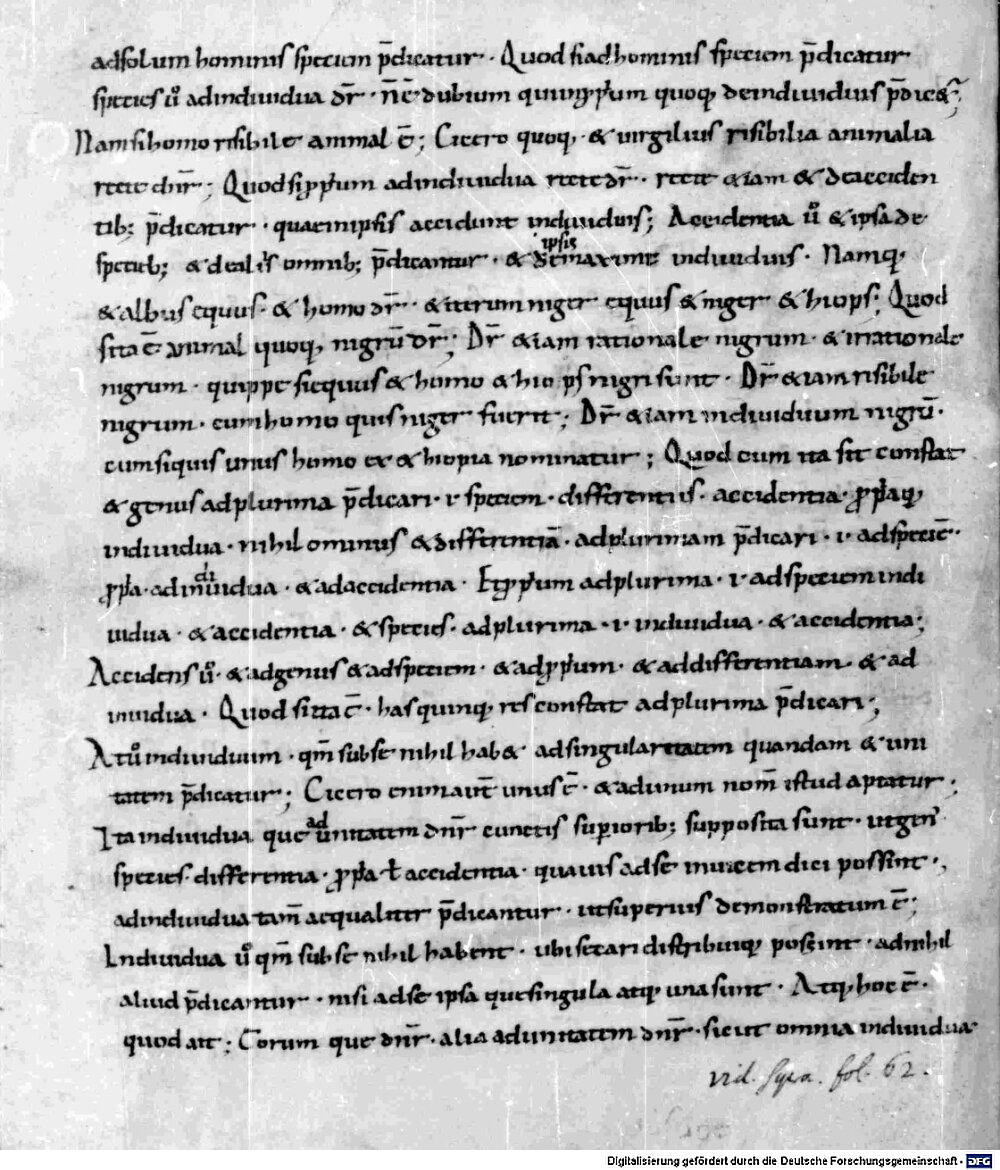 adsolum hominis speciem p̄dicatur · Quod si ad hominis speciem p̄dicatur
species ū ad indiuidua dr̄ · n̄ ē dubium quin pprium quoq; de indiuiduis p̄dicet̃;
Nam si homo risibile animal ē; Cicero quoq; & uirgilius risibilia animalia
recte dnr̄; Quod si pprium ad indiuidua recte dr̄ · recte & iam & de acciden
tib; p̄dicatur · quae in ipsis accidunt indiuiduis; Accidentia ū & ipsa de
specieb; & de aliis omnib; p̄dicantur · & de maxime ipsis indiuiduis · Namq;
& albus equus · & homo dr̄ · & iterum niger equus & niger & hiops; Quod
si ita ē animal quoq; nigrū dr̄; Dr̄ & iam rationale nigrum · & irrationale
nigrum · quippe si equus & homo & hiops nigri sunt · Dr̄ & iam risibile
nigrum · cum homo quis niger fuerit; Dr̄ & iam indiuiduum nigrū ·
cum si quis unus homo ex & hiopia nominatur; Quod cum ita sit constat
& genus ad plurima p̄dicari · i · speciem · differentiis · accidentia · ppria q;
indiuidua · nihilominus & differentiā · ad plurimam p̄dicari · i · ad speciē ·
ppria · ad indiuidua · & ad accidentia · Et pprium ad plurima · i · ad speciem indi
uidua · & accidentia · & species · ad plurima · i · indiuidua · & accidentia;
Accidens ū · & ad genus & ad speciem · & ad pprium · & ad differentiam · & ad
inuidua · Quod si ita ē · has quinq; res constat ad plurima p̄dicari;
At ū indiuiduum · qm̄ sub se nihil hab& ad singularitatem quandam & uni
tatem p̄dicatur; Cicero enim aut̄ unus ē · & ad unum nom̄ istud aptatur ·
Ita indiuidua que ad unitatem dnr̄ cunctis superiorib; supposita sunt · ut gen'
species · differentia · ppria ł accidentia · quauis ad se inuicem dici possint ·,
ad indiuidua tam̄ aequaliter p̄dicantur · ut superius demonstratum ē;
Indiuidua ū qm̄ sub se nihil habent · ubi secari distribuiq; possint · ad nihil
aliud p̄dicantur · nisi ad se ipsa que singula atq; una sunt · Atq; hoc ē ·
quod ait; Eorum que dnr̄ · alia ad unitatem dnr̄ · sicut omnia indiuidua
vid. supra. fol. 62.
Digitalisierung gefördert durch die Deutsche Forschungsgemeinschaft - DFG